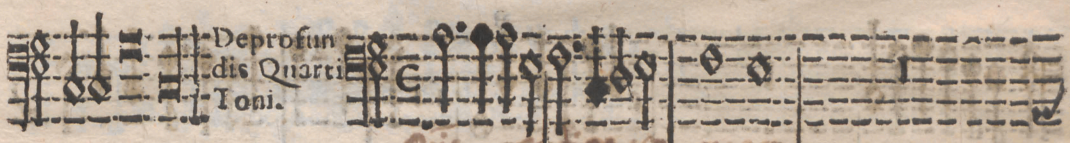 Deprofun
dis Quarti
Toni.